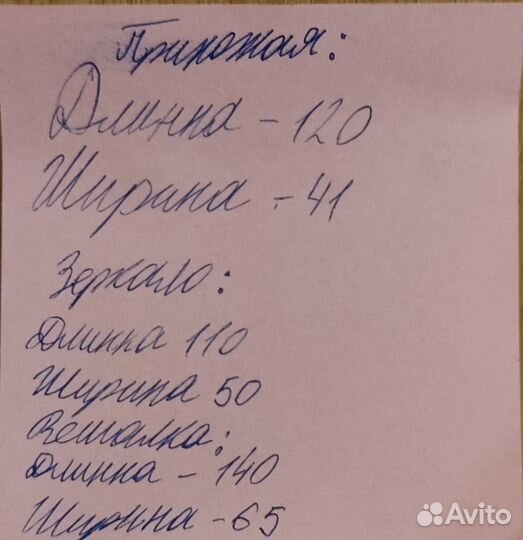 Прихожая:
Длинна - 120
Ширина - 41
Зеркало:
Длинна 110
Ширина 50
Вешалка:
Длинна - 140
Ширина - 65
Avito